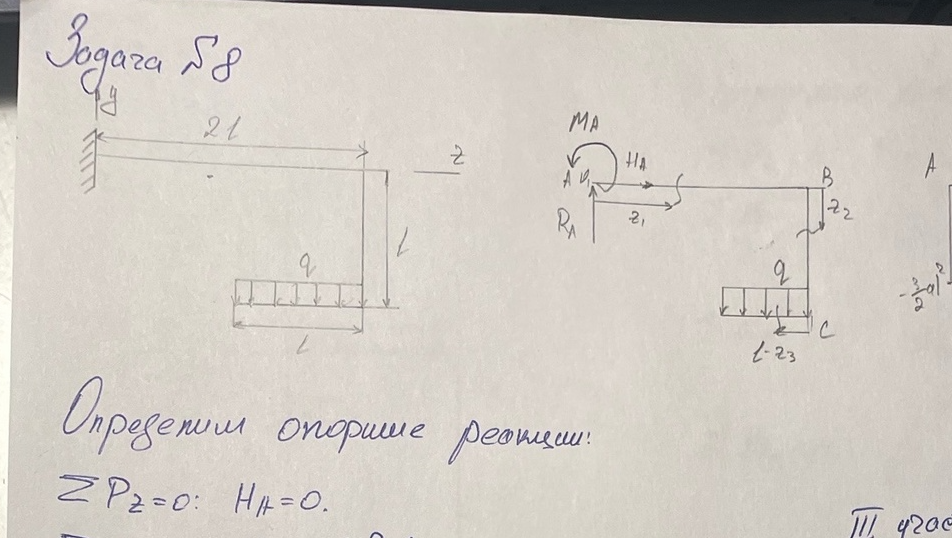 Задача №8
y
2l
z
l
q
l
MA
HA
A
B
RA
z1
z2
q
C
l-z3
A
-3/2ql²
Определим опорные реакции:
ΣPz=0: HA=0.
III учас